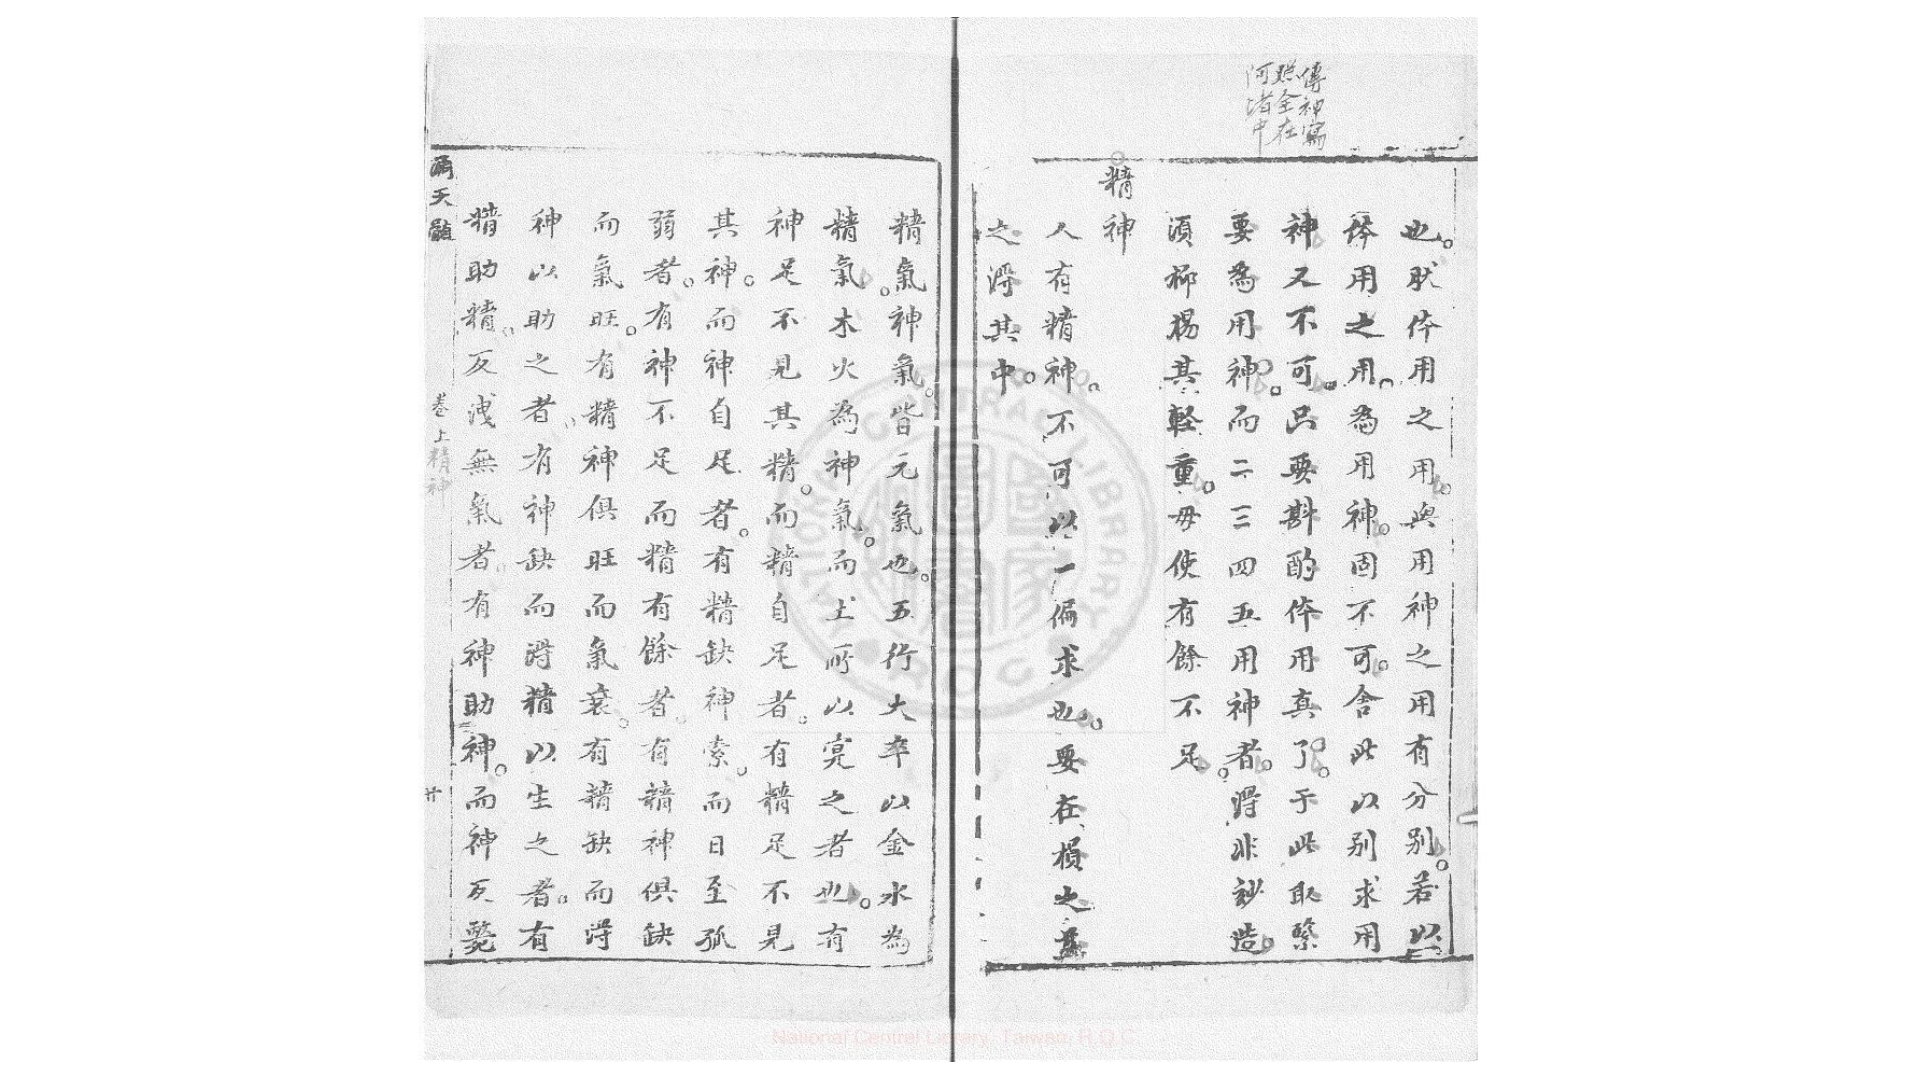 傳神寫
照全在
阿堵中
也。肰体用之用。與用神之用有分别。若以
体用之用。為用神。固不可。舍此以别求用
神又不可。只要斟酌体用真了。于此取緊
要為用神。而二三四五用神者。得非妙造
湏抑揚其軽重。毋使有餘不足。
精神
人有精神。不可以一偏求也。要在損之益
之得其中。
精氣。神氣。皆元氣也。五行大率以金水為
精氣。木火為神氣。而土所以寔之者也。有
神足不見其精。而精自足者。有精足不見
其神。而神自足者。有精缺神索。而日至孤
弱者。有神不足而精有餘者。有精神俱缺
而氣旺。有精神俱旺而氣衰。有精缺而得
神以助之者。有神缺而得精以生之者。有
精助精。反洩無氣者。有神助神。而神反斃
滴天髓
卷上精神
廿
NATIONAL CENTRAL LIBRARY R.O.C
National Central Library, Taiwan, R.O.C